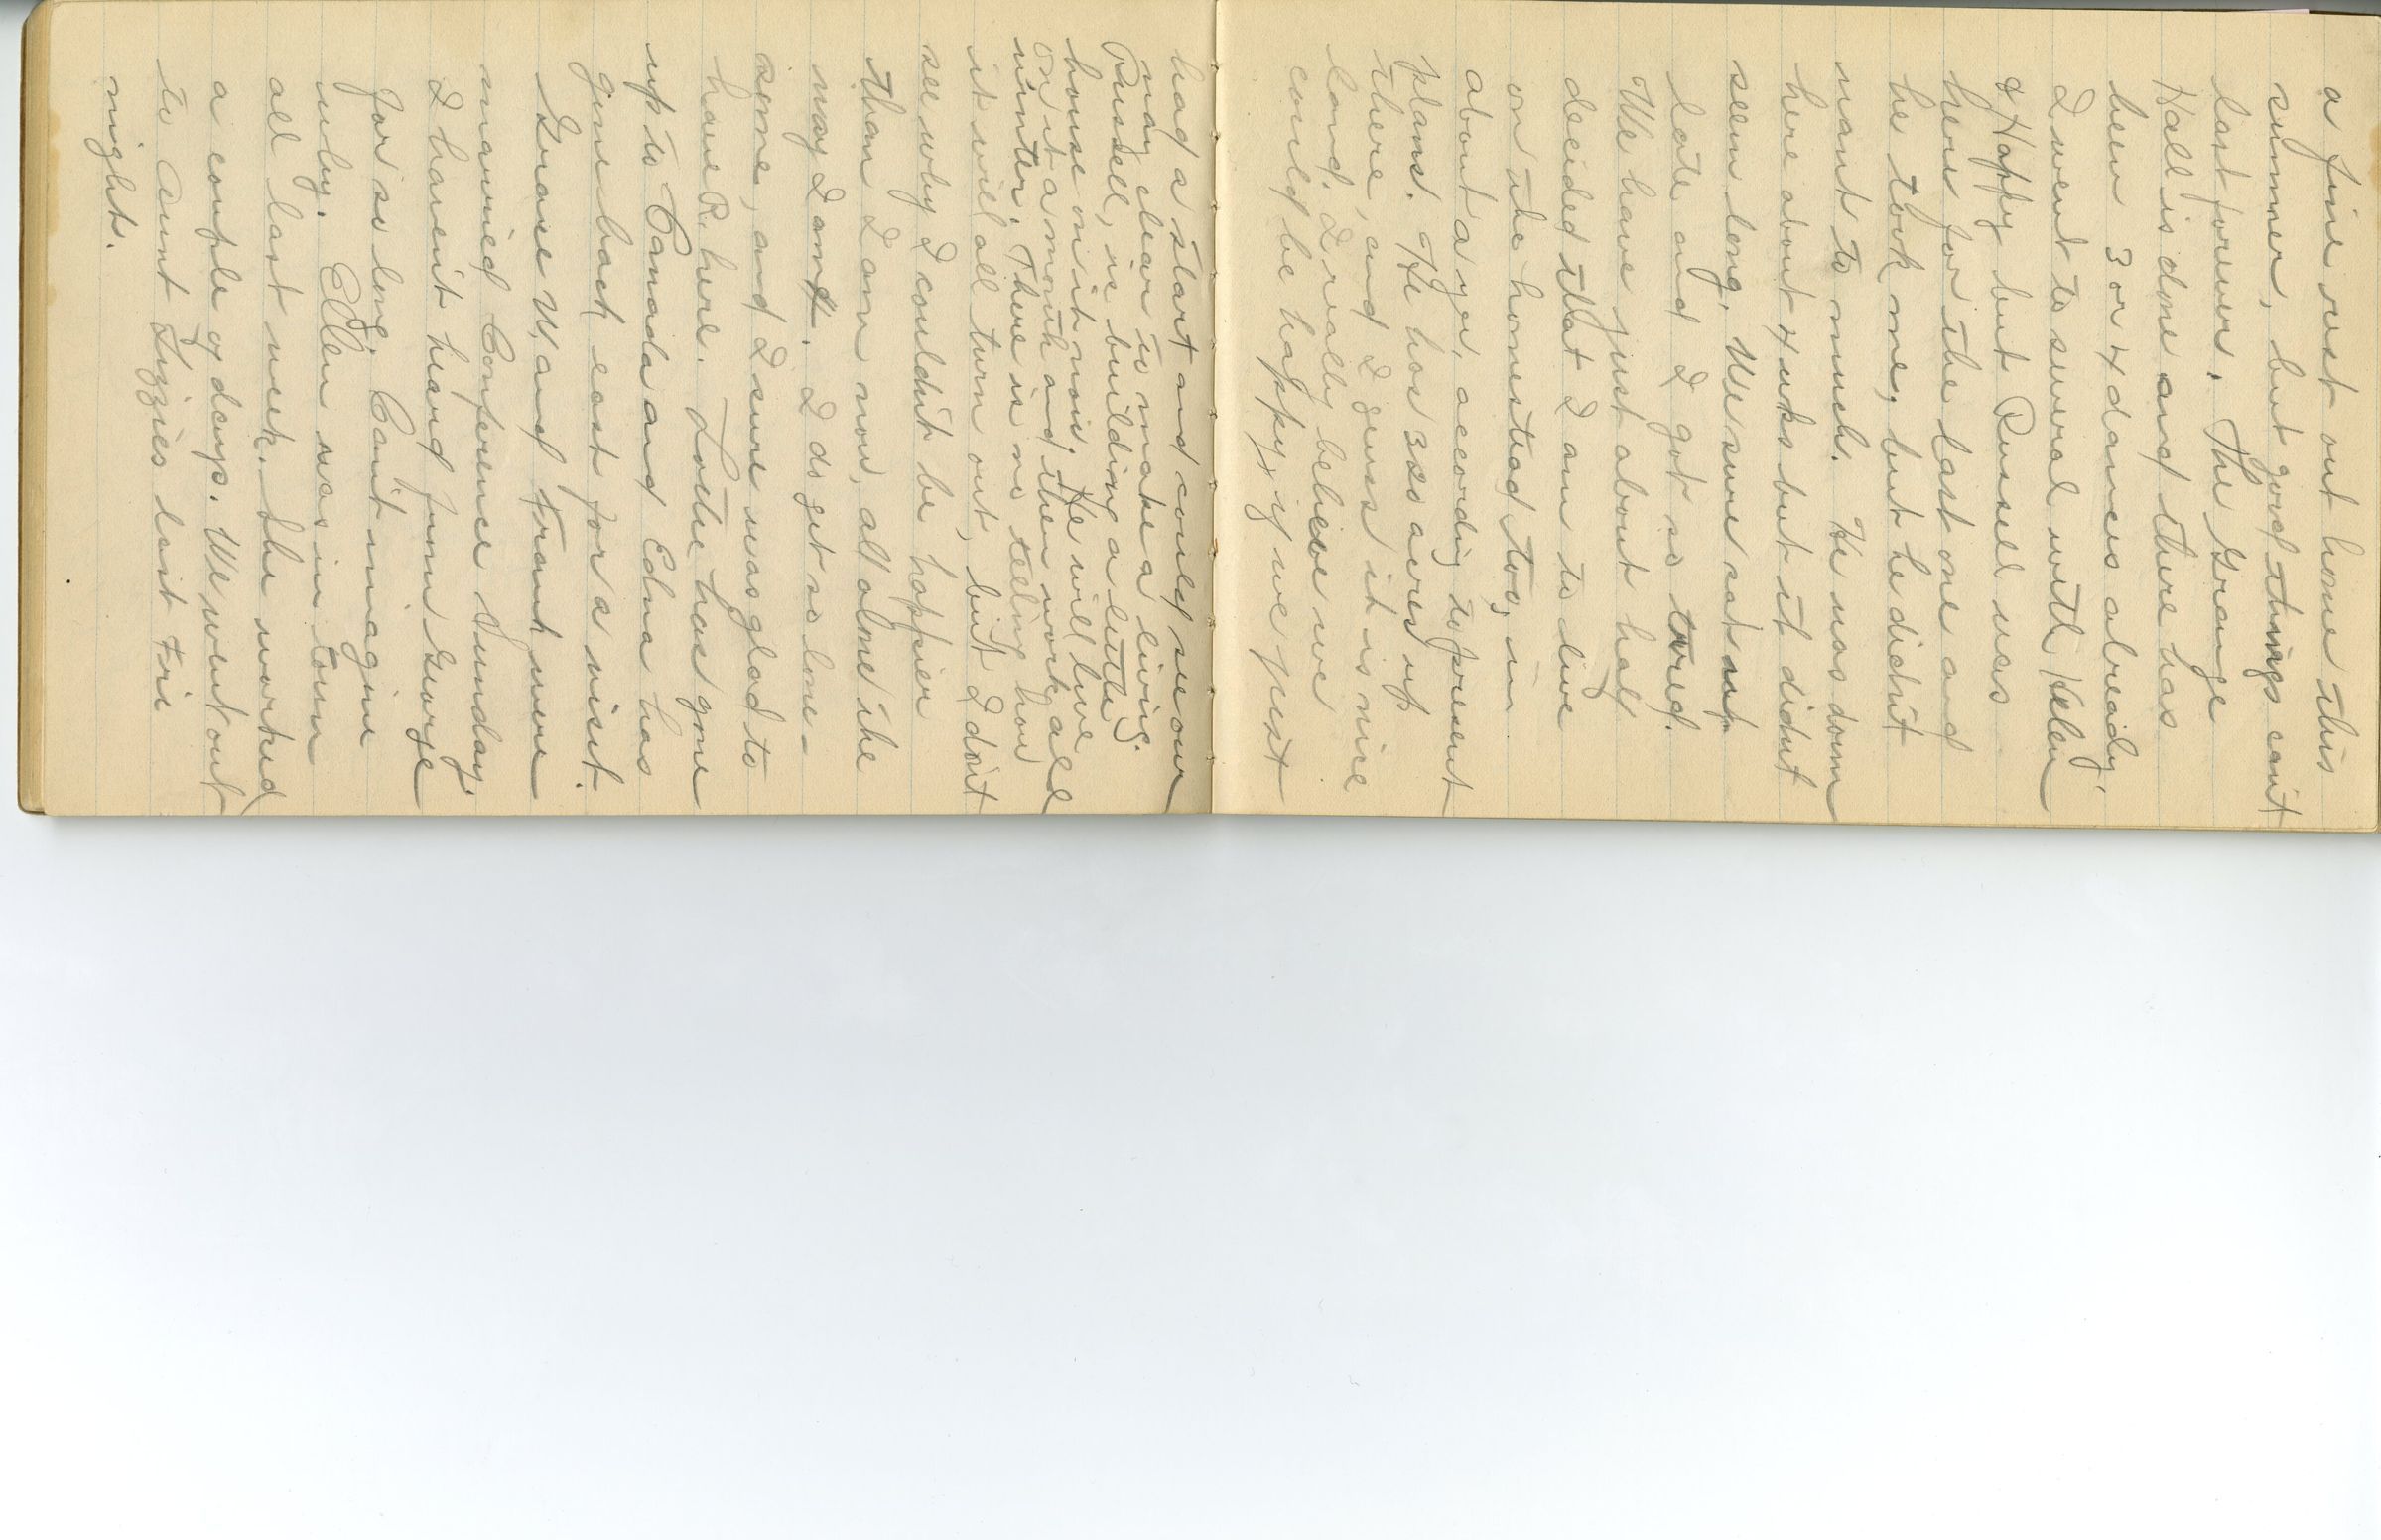 a fine rest out home this
summer, but good things can't
last forever. The Grange
Hall is done and there has
been 3 or 4 dances already.
I went to several with Helen
& Happy but Russel was
here for the last one and
he took me, but he didn't
want to much. He was down
here about 4 wks but it didn't
seem long. We sure sat up
late and I got so tired.
We have just about half
decided that I am to live
on the homestead too, in
about a yr, according to present
plans. He has 320 acres up
there, and I guess it is nice
land. I really believe we
could be happy, if we just
had a start and could see our
way clear to make a living.
Russell, is building a little
house on it now. He will live
on it a month and then work all
winter. There is no telling how
it will all turn out, but I don't
see why I couldn't be happier
than I am now, all alone the
way I am. I do get so lone-
some, and I sure was glad to
have R. here. Lottie has gone
up to Canada and Edna has
gone back east for a visit.
Grace W. and Frank were
married Conference Sunday.
I haven't heard from George
for so long. Can't imagine
why. Ellen was in town
all last week. She worked
a couple of days. We went out
to Aunt Lizzies last Fri
night.